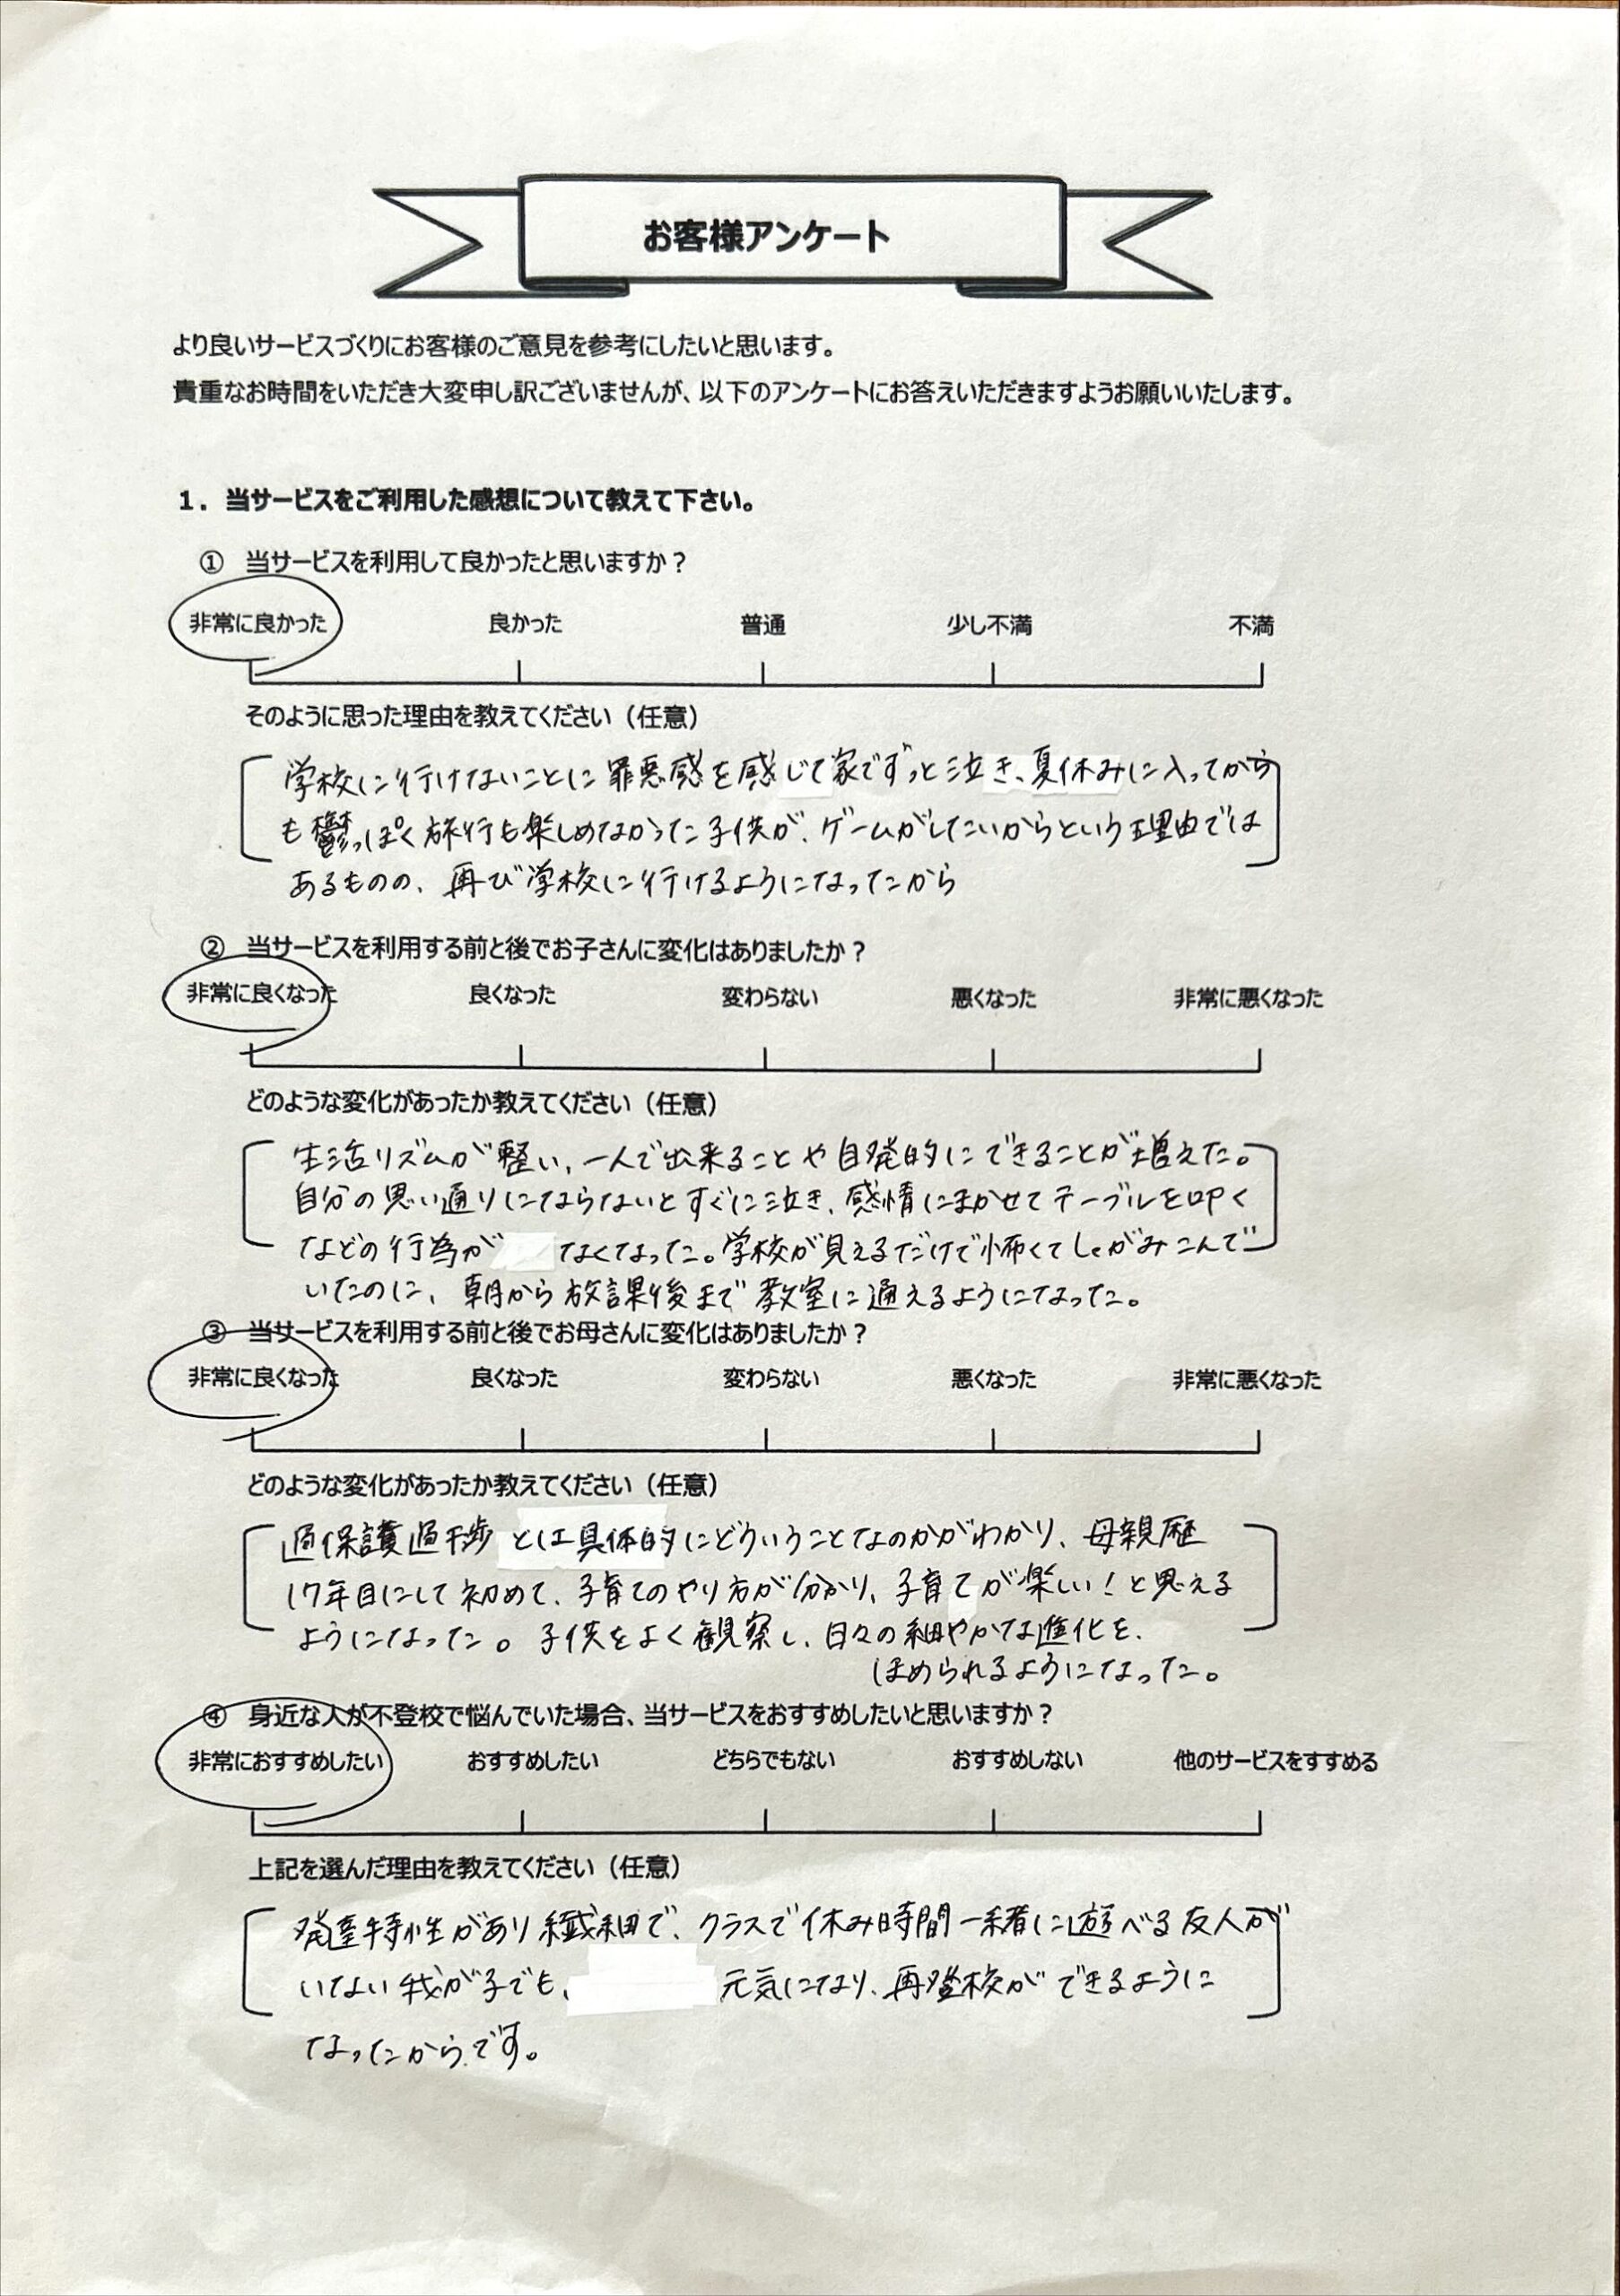 お客様アンケート
より良いサービスづくりにお客様のご意見を参考にしたいと思います。
貴重なお時間をいただき大変申し訳ございませんが、以下のアンケートにお答えいただきますようお願いいたします。
1．当サービスをご利用した感想について教えて下さい。
① 当サービスを利用して良かったと思いますか？
非常に良かった 良かった 普通 少し不満 不満
そのように思った理由を教えてください（任意）
学校に行けないことに罪悪感を感じて家でずっと泣き、夏休みに入ってから
も鬱っぽく旅行も楽しめなかった子供が、ゲームがしたいからという理由では
あるものの、再び学校に行けるようになったから
② 当サービスを利用する前と後でお子さんに変化はありましたか？
非常に良くなった 良くなった 変わらない 悪くなった 非常に悪くなった
どのような変化があったか教えてください（任意）
生活リズムが い、一人で出来ることや自発的にできることが増えた。
自分の思い通りにならないとすぐに泣き、感情にまかせてテーブルを叩く
などの行為が なくなった。学校が見えるだけで怖くてしゃがみこんで
いたのに、朝から放課後まで教室に通えるようになった。
③ 当サービスを利用する前と後でお母さんに変化はありましたか？
非常に良くなった 良くなった 変わらない 悪くなった 非常に悪くなった
どのような変化があったか教えてください（任意）
過保護過干渉とは具体的にどういうことなのかがわかり、母親歴
17年目にして初めて、子育てのやり方が分かり、子育てが楽しい！と思える
ようになった。子供をよく観察し、日々の細やかな進化を、
ほめられるようになった。
④ 身近な人が不登校で悩んでいた場合、当サービスをおすすめしたいと思いますか？
非常におすすめしたい おすすめしたい どちらでもない おすすめしない 他のサービスをすすめる
上記を選んだ理由を教えてください（任意）
発達特性があり繊細で、クラスで休み時間一緒に遊べる友人が
いない我が子でも、 元気になり、再登校ができるように
なったからです。